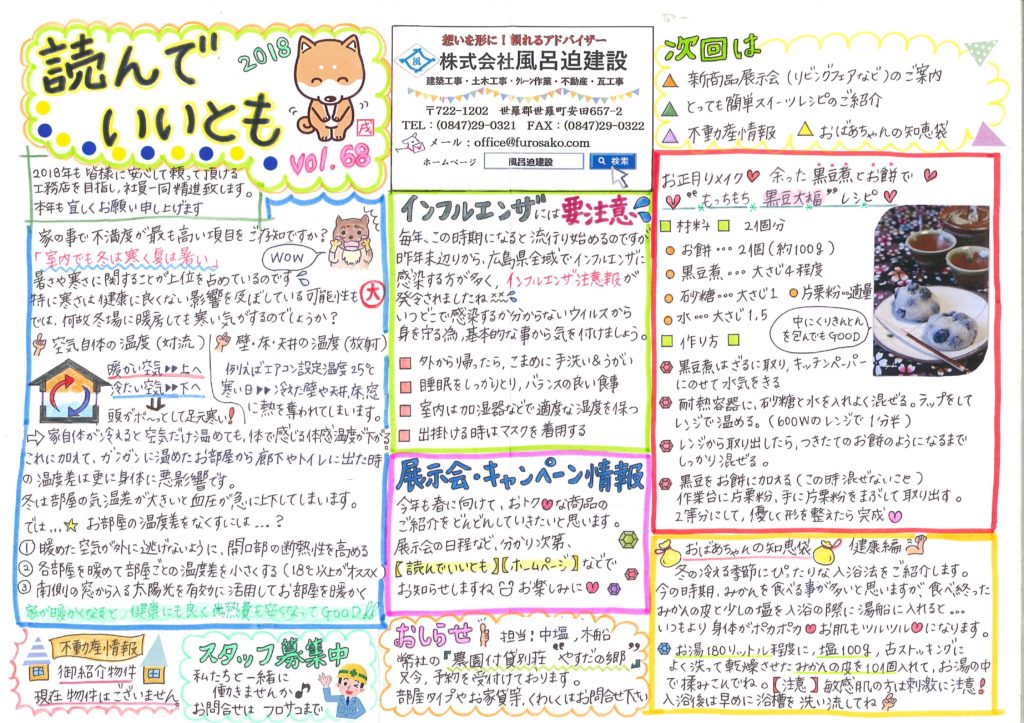 読んで
いいとも
2018
戌
vol.68
2018年も皆様に安心して頼って頂ける
工務店を目指し、社員一同精進致します。
本年も宜しくお願い申し上げます
家の事で不満度が最も高い項目をご存知ですか?
「室内でも冬は寒く夏は暑い」
WOW
暑さや寒さに関することが上位を占めているのです
特に寒さは健康に良くない影響を及ぼしている可能性も大
では、何故冬場に暖房しても寒い気がするのでしょうか?
空気自体の温度(対流)
暖かい空気▸▸上へ
冷たい空気▸▸下へ
頭がボ〜っとして足元寒い!
壁・床・天井の温度(放射)
例えばエアコン設定温度25℃
寒い日▸▸冷えた壁や天井、床、窓
に熱を奪われてしまいます。
⇨家自体が冷えると空気だけ温めても、体で感じる体感温度が下がる
これに加えて、ガンガンに温めたお部屋から廊下やトイレに出た時
の温度差は更に身体に悪影響です。
冬は部屋の気温差が大きいと血圧が急に上下してしまいます。
では...☆お部屋の温度差をなくすには...?
① 暖めた空気が外に逃げないように、開口部の断熱性を高める
② 各部屋を暖めて部屋ごとの温度差を小さくする(18℃以上がオススメ)
③ 南側の窓から入る太陽光を有効に活用してお部屋を暖かく
家が暖かくなると、健康にも良く光熱費も安くなってGOOD!!
不動産情報
御紹介物件
現在物件はございません。
スタッフ募集中
私たちと一緒に
働きませんか♪
お問合せは フロサコまで
想いを形に!頼れるアドバイザー
風
株式会社風呂迫建設
建築工事・土木工事・クレーン作業・不動産・瓦工事
〒722-1202 世羅郡世羅町安田657-2
TEL:(0847)29-0321 FAX:(0847)29-0322
メール:office@furosako.com
ホームページ 風呂迫建設 検索
インフルエンザには要注意
毎年、この時期になると流行り始めるのですが
昨年末辺りから、広島県全域でインフルエンザに
感染する方が多く、インフルエンザ注意報が
発令されましたね
いつどこで感染するか分からないウイルスから
身を守る為、基本的な事から気を付けましょう。
外から帰ったら、こまめに手洗い&うがい
睡眠をしっかりとり、バランスの良い食事
室内は加湿器などで適度な湿度を保つ
出掛ける時はマスクを着用する
展示会・キャンペーン情報
今年も春に向けて、おトク♥な商品の
ご紹介をどんどんしていきたいと思います。
展示会の日程など、分かり次第、
【読んでいいとも】【ホームページ】などで
お知らせしますね お楽しみに♥
おしらせ 担当:中塩,木船
弊社の『農園付貸別荘 "やすだの郷"』
又今、予約を受付けております。
部屋タイプやお家賃等、くわしくはお問合せ下さい
次回は
新商品展示会(リビングフェアなど)のご案内
とっても簡単スイーツレシピのご紹介
不動産情報 おばあちゃんの知恵袋
お正月リメイク♥ 余った黒豆煮とお餅で
♥"もっちもち 黒豆大福"レシピ♥
材料 2個分
お餅・・・2個(約100g)
黒豆煮・・・大さじ4程度
砂糖・・・大さじ1 片栗粉・・適量
水・・・大さじ1,5
中にくりきんとん
を包んでもGOOD
作り方
黒豆煮はざるに取り、キッチンペーパー
にのせて水気をきる
耐熱容器に、砂糖と水を入れよく混ぜる。ラップをして
レンジで温める。(600Wのレンジで1分半)
レンジから取り出したら、つきたてのお餅のようになるまで
しっかり混ぜる。
黒豆をお餅に加える(この時混ぜないこと)
作業台に片栗粉、手に片栗粉をまぶして取り出す。
2等分にして、優しく形を整えたら完成♥
おばあちゃんの知恵袋 健康編
冬の冷える季節にぴったりな入浴法をご紹介します。
今の時期、みかんを食べる事が多いと思いますが、食べ終わった
みかんの皮と少しの塩を入浴の際に湯船に入れると...
いつもより身体がポカポカ♥お肌もツルツル♥になります。
お湯180リットル程度に、塩100g、古ストッキングに
よく洗って乾燥させたみかんの皮を10個入れて、お湯の中
で揉みこんでね。【注意】敏感肌の方は刺激に注意!
入浴後は早めに浴槽を洗い流してね